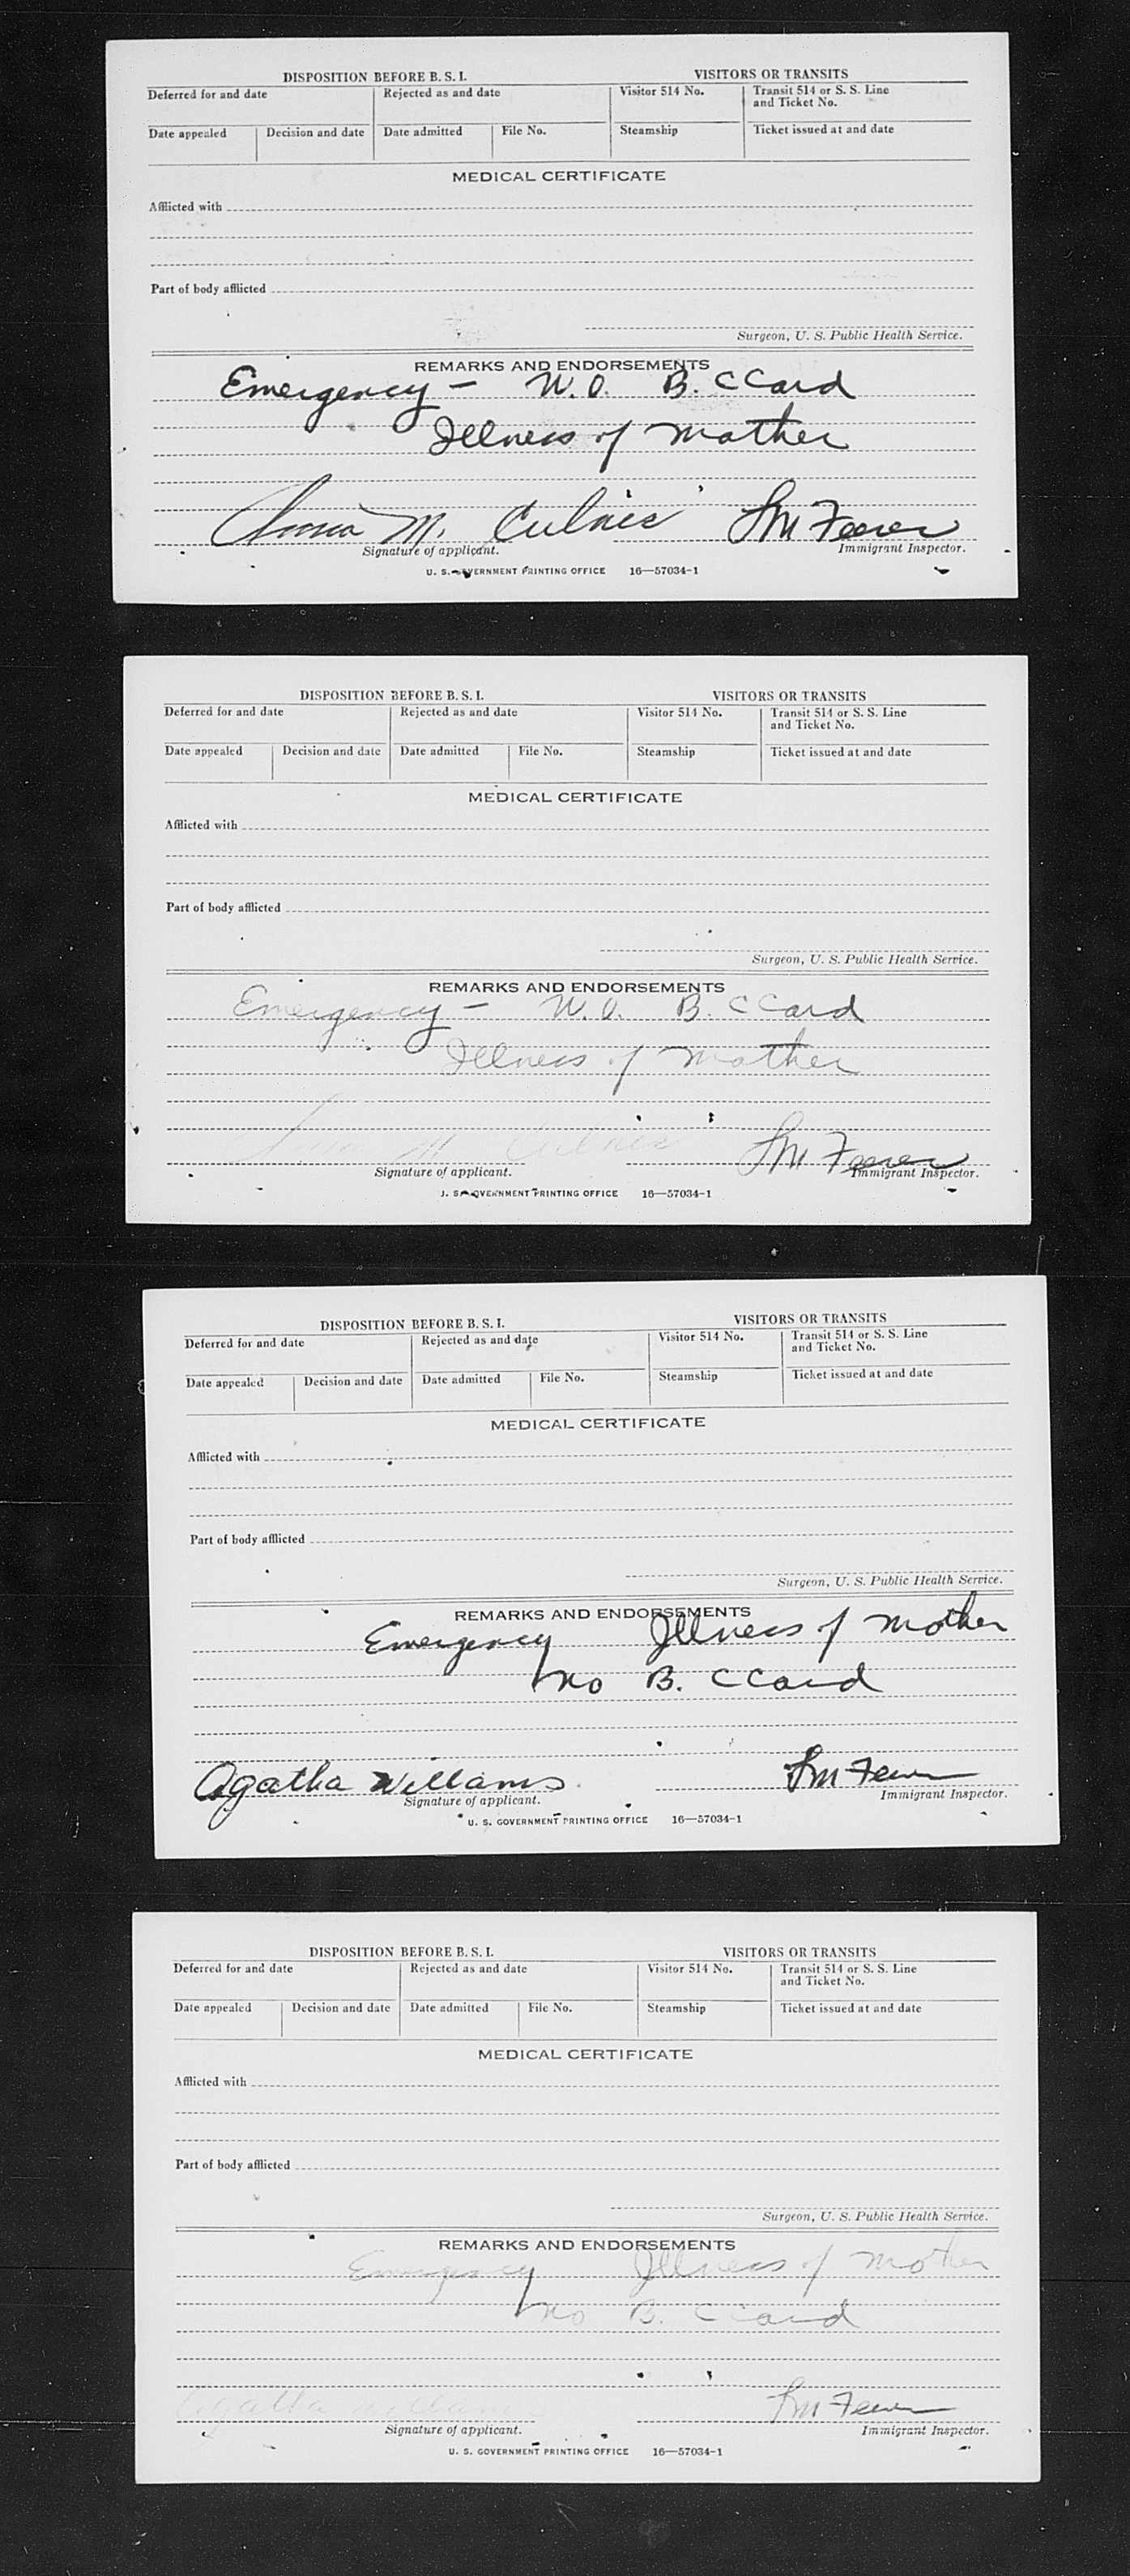 DISPOSITION BEFORE B. S. I.
VISITORS OR TRANSITS
Deferred for and date
Rejected as and date
Visitor 514 No.
Transit 514 or S. S. Line
and Ticket No.
Date appealed
Decision and date
Date admitted
File No.
Steamship
Ticket issued at and date
MEDICAL CERTIFICATE
Afflicted with
Part of body afflicted
Surgeon, U. S. Public Health Service.
REMARKS AND ENDORSEMENTS
Emergency — B. C Card
Illness of mother
M.
Signature of applicant.
Immigrant Inspector.
U. S. GOVERNMENT PRINTING OFFICE 16—57034-1
DISPOSITION BEFORE B. S. I.
VISITORS OR TRANSITS
Deferred for and date
Rejected as and date
Visitor 514 No.
Transit 514 or S. S. Line
and Ticket No.
Date appealed
Decision and date
Date admitted
File No.
Steamship
Ticket issued at and date
MEDICAL CERTIFICATE
Afflicted with
Part of body afflicted
Surgeon, U. S. Public Health Service.
REMARKS AND ENDORSEMENTS
Emergency — B. C Card
Illness of mother
Signature of applicant.
Immigrant Inspector.
U. S. GOVERNMENT PRINTING OFFICE 16—57034-1
DISPOSITION BEFORE B. S. I.
VISITORS OR TRANSITS
Deferred for and date
Rejected as and date
Visitor 514 No.
Transit 514 or S. S. Line
and Ticket No.
Date appealed
Decision and date
Date admitted
File No.
Steamship
Ticket issued at and date
MEDICAL CERTIFICATE
Afflicted with
Part of body afflicted
Surgeon, U. S. Public Health Service.
REMARKS AND ENDORSEMENTS
Emergency Illness of mother
no B. C Card
Agatha Williams
Signature of applicant.
Immigrant Inspector.
U. S. GOVERNMENT PRINTING OFFICE 16—57034-1
DISPOSITION BEFORE B. S. I.
VISITORS OR TRANSITS
Deferred for and date
Rejected as and date
Visitor 514 No.
Transit 514 or S. S. Line
and Ticket No.
Date appealed
Decision and date
Date admitted
File No.
Steamship
Ticket issued at and date
MEDICAL CERTIFICATE
Afflicted with
Part of body afflicted
Surgeon, U. S. Public Health Service.
REMARKS AND ENDORSEMENTS
Emergency Illness of mother
no B. C Card
Agatha Williams
Signature of applicant.
Immigrant Inspector.
U. S. GOVERNMENT PRINTING OFFICE 16—57034-1